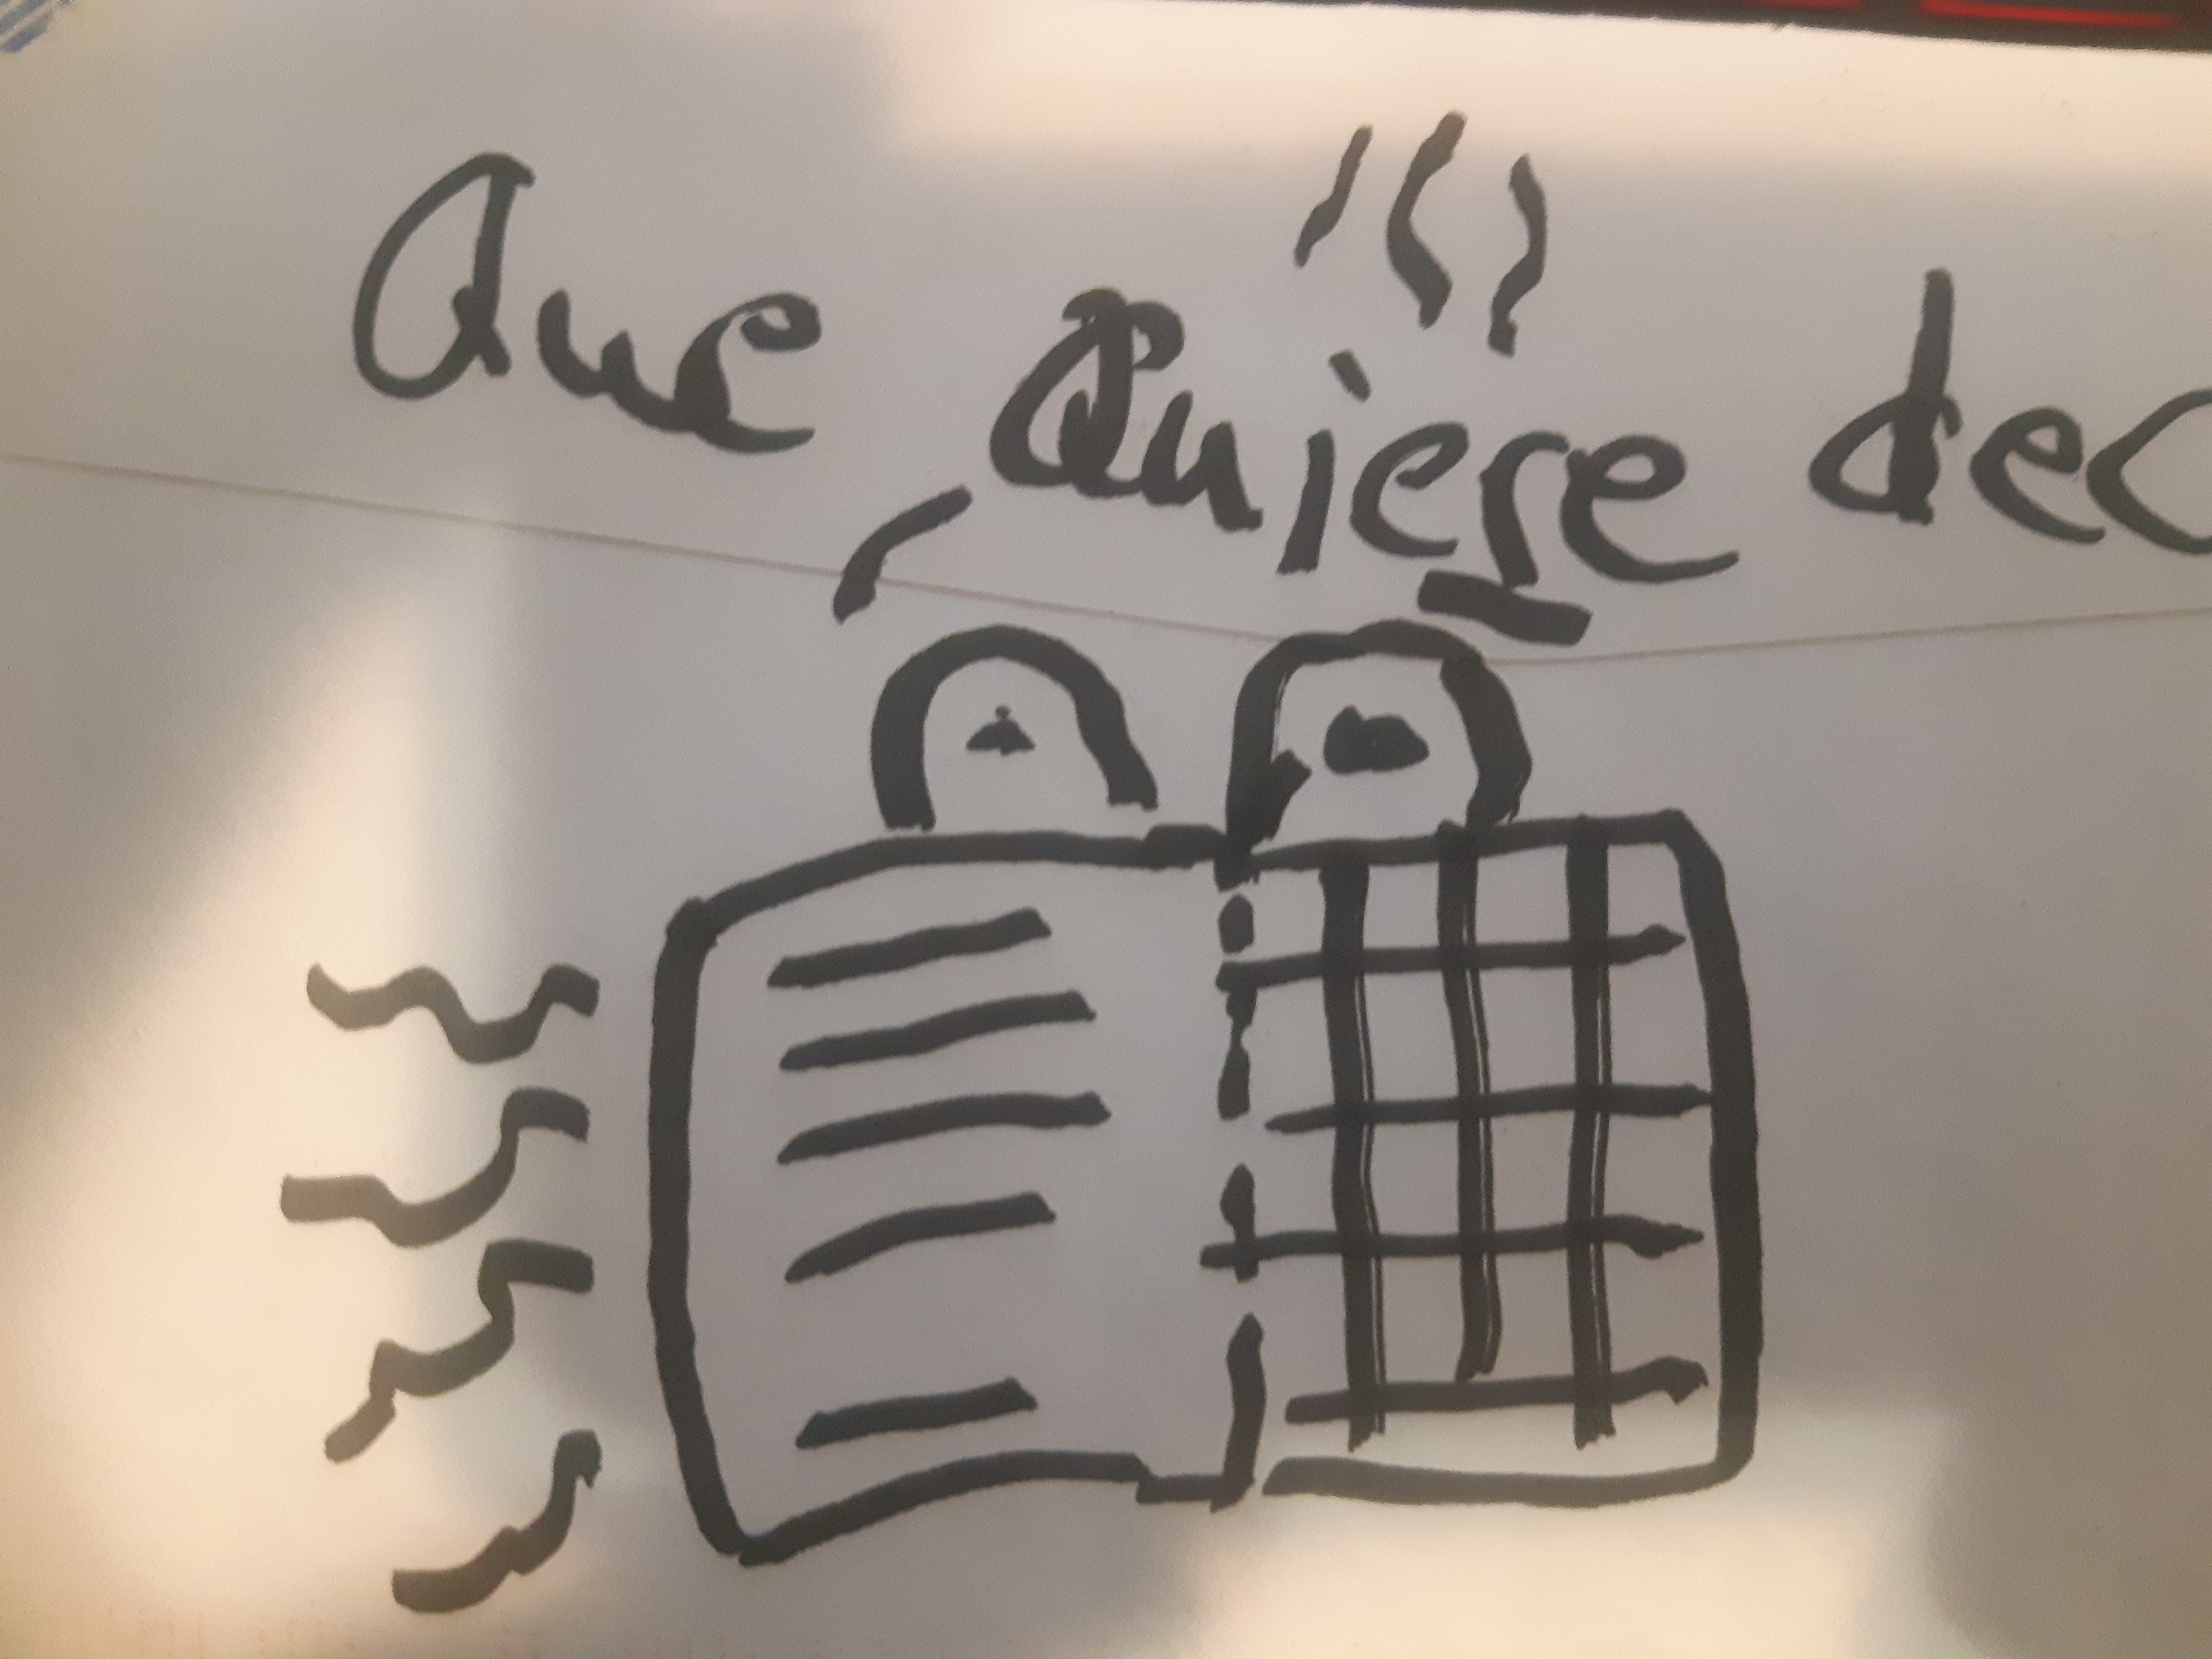 Que Quiere dec